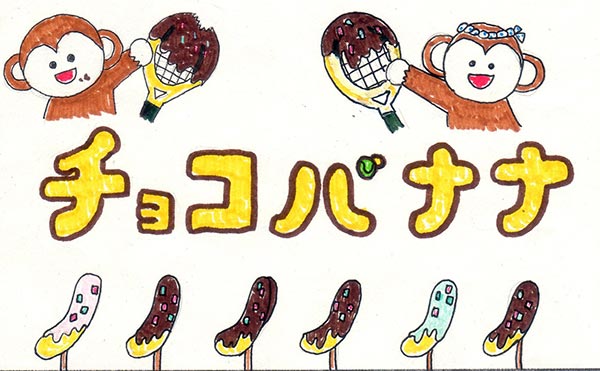 チョコバナナ